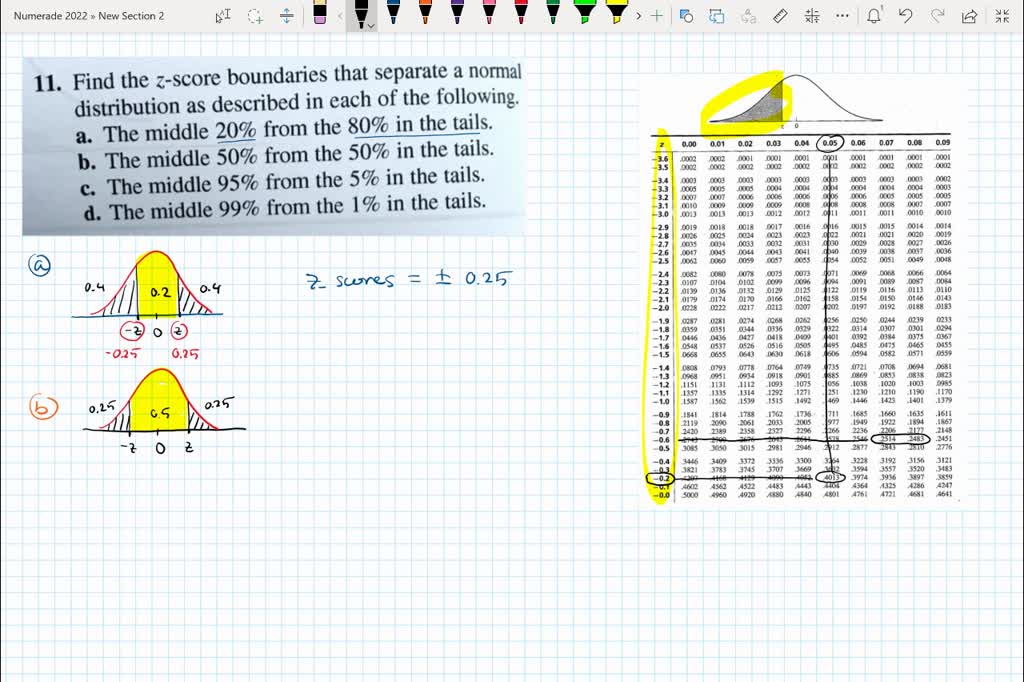 Numerade 2022 » New Section 2
11. Find the z-score boundaries that separate a normal
distribution as described in each of the following.
a. The middle 20% from the 80% in the tails.
b. The middle 50% from the 50% in the tails.
c. The middle 95% from the 5% in the tails.
d. The middle 99% from the 1% in the tails.
a
0.4 0.2 0.4
-z 0 z
-0.25 0.25
z_ scores = ± 0.25
b
0.25 0.5 0.25
-z 0 z
z 0
z 0.00 0.01 0.02 0.03 0.04 0.05 0.06 0.07 0.08 0.09
-3.6 .0002 .0002 .0001 .0001 .0001 .0001 .0001 .0001 .0001 .0001
-3.5 .0002 .0002 .0002 .0002 .0002 .0002 .0002 .0002 .0002 .0002
-3.4 .0003 .0003 .0003 .0003 .0003 .0003 .0003 .0003 .0003 .0002
-3.3 .0005 .0005 .0005 .0004 .0004 .0004 .0004 .0004 .0004 .0003
-3.2 .0007 .0007 .0006 .0006 .0006 .0006 .0006 .0005 .0005 .0005
-3.1 .0010 .0009 .0009 .0009 .0008 .0008 .0008 .0008 .0007 .0007
-3.0 .0013 .0013 .0013 .0012 .0012 .0011 .0011 .0011 .0010 .0010
-2.9 .0019 .0018 .0018 .0017 .0016 .0016 .0015 .0015 .0014 .0014
-2.8 .0026 .0025 .0024 .0023 .0023 .0022 .0021 .0021 .0020 .0019
-2.7 .0035 .0034 .0033 .0032 .0031 .0030 .0029 .0028 .0027 .0026
-2.6 .0047 .0045 .0044 .0043 .0041 .0040 .0039 .0038 .0037 .0036
-2.5 .0062 .0060 .0059 .0057 .0055 .0054 .0052 .0051 .0049 .0048
-2.4 .0082 .0080 .0078 .0075 .0073 .0071 .0069 .0068 .0066 .0064
-2.3 .0107 .0104 .0102 .0099 .0096 .0094 .0091 .0089 .0087 .0084
-2.2 .0139 .0136 .0132 .0129 .0125 .0122 .0119 .0116 .0113 .0110
-2.1 .0179 .0174 .0170 .0166 .0162 .0158 .0154 .0150 .0146 .0143
-2.0 .0228 .0222 .0217 .0212 .0207 .0202 .0197 .0192 .0188 .0183
-1.9 .0287 .0281 .0274 .0268 .0262 .0256 .0250 .0244 .0239 .0233
-1.8 .0359 .0351 .0344 .0336 .0329 .0322 .0314 .0307 .0301 .0294
-1.7 .0446 .0436 .0427 .0418 .0409 .0401 .0392 .0384 .0375 .0367
-1.6 .0548 .0537 .0526 .0516 .0505 .0495 .0485 .0475 .0465 .0455
-1.5 .0668 .0655 .0643 .0630 .0618 .0606 .0594 .0582 .0571 .0559
-1.4 .0808 .0793 .0778 .0764 .0749 .0735 .0721 .0708 .0694 .0681
-1.3 .0968 .0951 .0934 .0918 .0901 .0885 .0869 .0853 .0838 .0823
-1.2 .1151 .1131 .1112 .1093 .1075 .1056 .1038 .1020 .1003 .0985
-1.1 .1357 .1335 .1314 .1292 .1271 .1251 .1230 .1210 .1190 .1170
-1.0 .1587 .1562 .1539 .1515 .1492 .1469 .1446 .1423 .1401 .1379
-0.9 .1841 .1814 .1788 .1762 .1736 .1711 .1685 .1660 .1635 .1611
-0.8 .2119 .2090 .2061 .2033 .2005 .1977 .1949 .1922 .1894 .1867
-0.7 .2420 .2389 .2358 .2327 .2296 .2266 .2236 .2206 .2177 .2148
-0.6 .2743 .2709 .2676 .2643 .2611 .2578 .2546 .2514 .2483 .2451
-0.5 .3085 .3050 .3015 .2981 .2946 .2912 .2877 .2843 .2810 .2776
-0.4 .3446 .3409 .3372 .3336 .3300 .3264 .3228 .3192 .3156 .3121
-0.3 .3821 .3783 .3745 .3707 .3669 .3632 .3594 .3557 .3520 .3483
-0.2 .4207 .4168 .4129 .4090 .4052 .4013 .3974 .3936 .3897 .3859
-0.1 .4602 .4562 .4522 .4483 .4443 .4404 .4364 .4325 .4286 .4247
-0.0 .5000 .4960 .4920 .4880 .4840 .4801 .4761 .4721 .4681 .4641